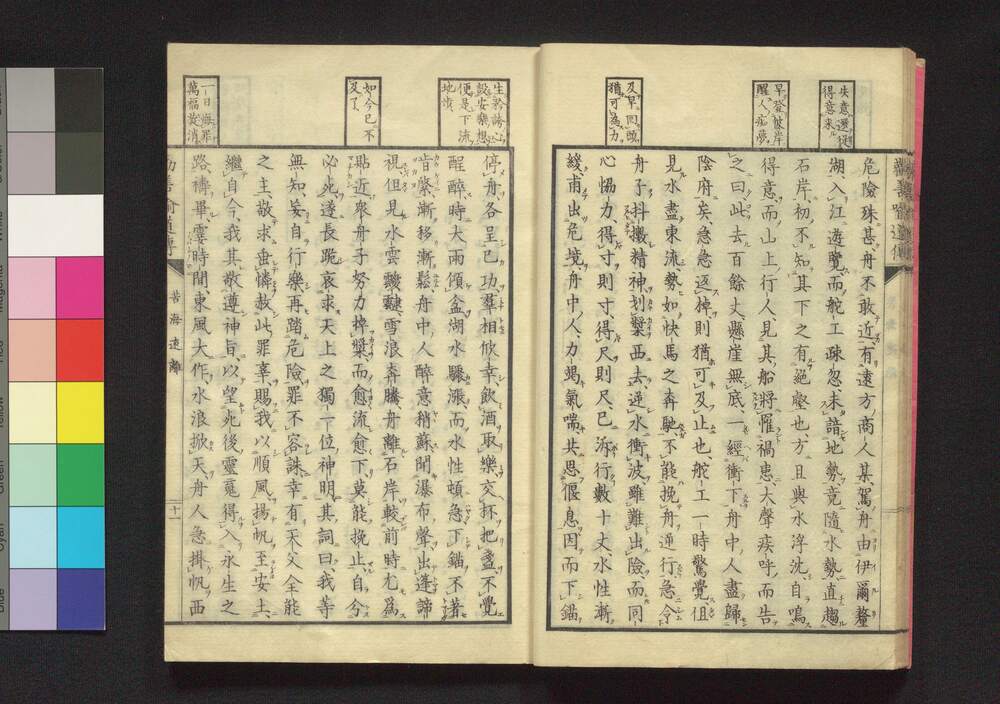 失意還從
得意來
早登彼岸
醒人痴夢
及早回頭
猶可為力
勸善喻道傳
危險殊甚舟不敢近有遠方商人某駕舟由伊爾釐
湖入江遊覽而舵工疎忽未諳地勢竟隨水勢直趨
石岸初不知其下之有絕壑也方且與水浮沈自鳴
得意而山上行人見其船將罹禍患大聲疾呼而告
之曰此去百餘丈懸崖無底一經衝下舟中人盡歸
陰府矣急急返棹則猶可及止也舵工一時驚覺但
見水盡東流勢如快馬之奔馳不能挽舟逆行急令
舟子抖擻精神划槳西去逆水衝波雖難出險而同
心恊力得寸則寸得尺則尺已泝行數十丈水性漸
緩甫出危境舟中人力竭氣喘共思偃息因而下錨
設安樂想
便是下流
地獄
如今已不
及了
一日悔罪
萬福並消
停舟各呈已功羣相欣幸飲酒取樂交抔把盞不覺
酲醉時大雨傾盆湖水驟漲而水性頓急丁錨不著
岸槳漸移漸鬆舟中人醉意稍蘇聞瀑布聲出逢諦
視但見水雲靉靆雪浪奔騰舟離石岸較前時尤為
貼近衆舟子努力棹槳而愈流愈下莫能挽止自分
必死遂長跪哀求天上之獨一位神明其詞曰我等
無知妄自行樂再踏危險罪不容誅幸有天父全能
之主敬求垂憐赦此罪辜賜我以順風揚帆至安土
繼自今我其敬遵神旨以望死後靈䰟得入永生之
路禱畢霎時間東風大作水浪掀天舟人急掛帆西
喻道傳
苦海遠離
十一